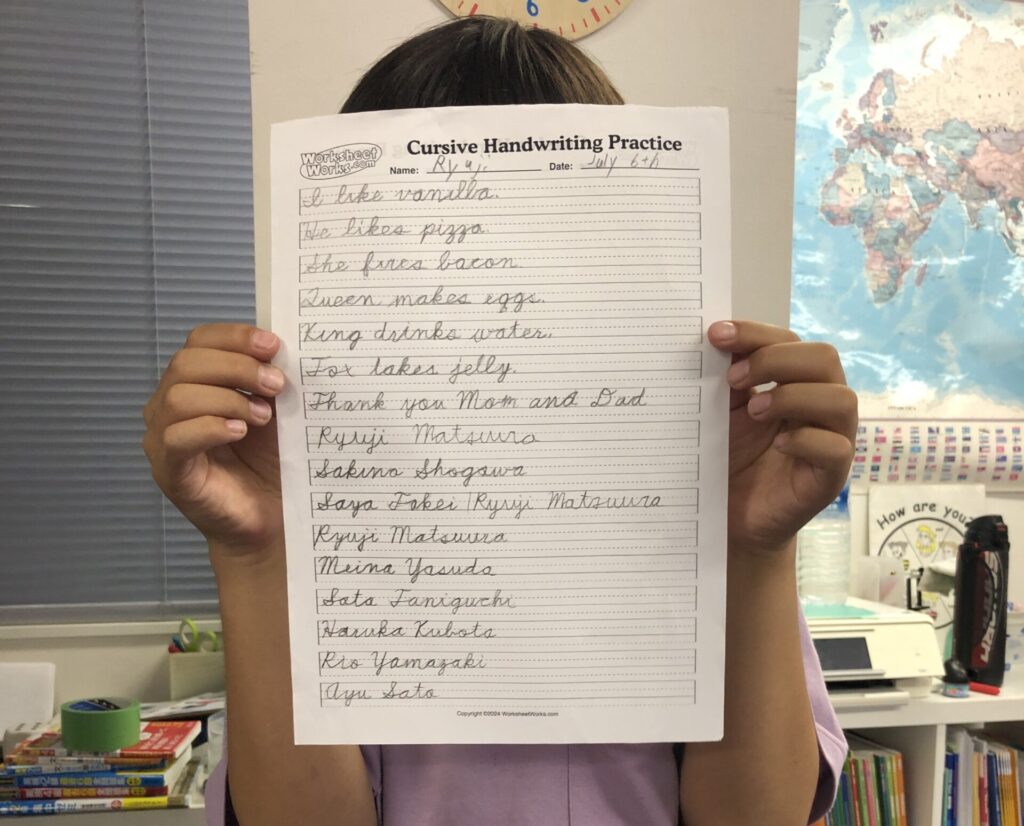 Worksheet Works.com
Cursive Handwriting Practice
Name: Ryuji Date: July 6th
I like vanilla.
He likes pizza.
She fires bacon.
Queen makes eggs.
King drinks water.
Fox takes jelly.
Thank you Mom and Dad
Ryuji Matsuura
Sakino Shogawa
Saya Takei Ryuji Matsuura
Ryuji Matsuura
Meina Yasuda
Sata Taniguchi
Haruka Kubota
Rio Yamazaki
Ayu Sato
Copyright ©2024 WorksheetWorks.com
How are you?